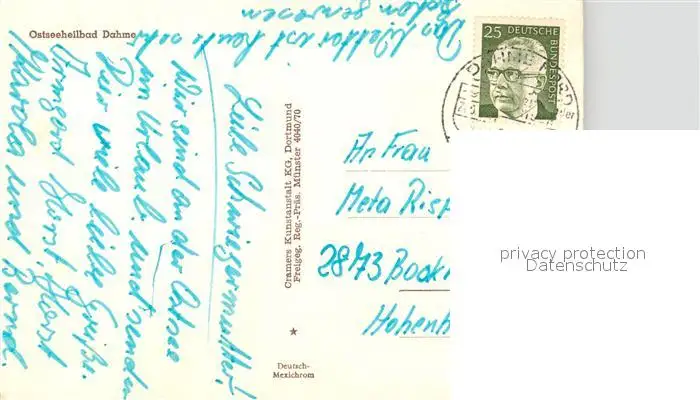 Ostseeheilbad Dahme
Das Wetter ist heute sehr
schön gewesen
Liebe Schwiegermutter!
Wir sind an der Ostsee
im Urlaub und senden
Dir viele liebe Grüße.
Horst
und Bernd.
Cramers Kunstanstalt KG, Dortmund
Freigeg. Reg.-Präs. Münster 4040/70
Deutsch-
Mexichrom
25 DEUTSCHE
BUNDESPOST
An Frau
Meta
2873
Hohen
privacy protection
Datenschutz